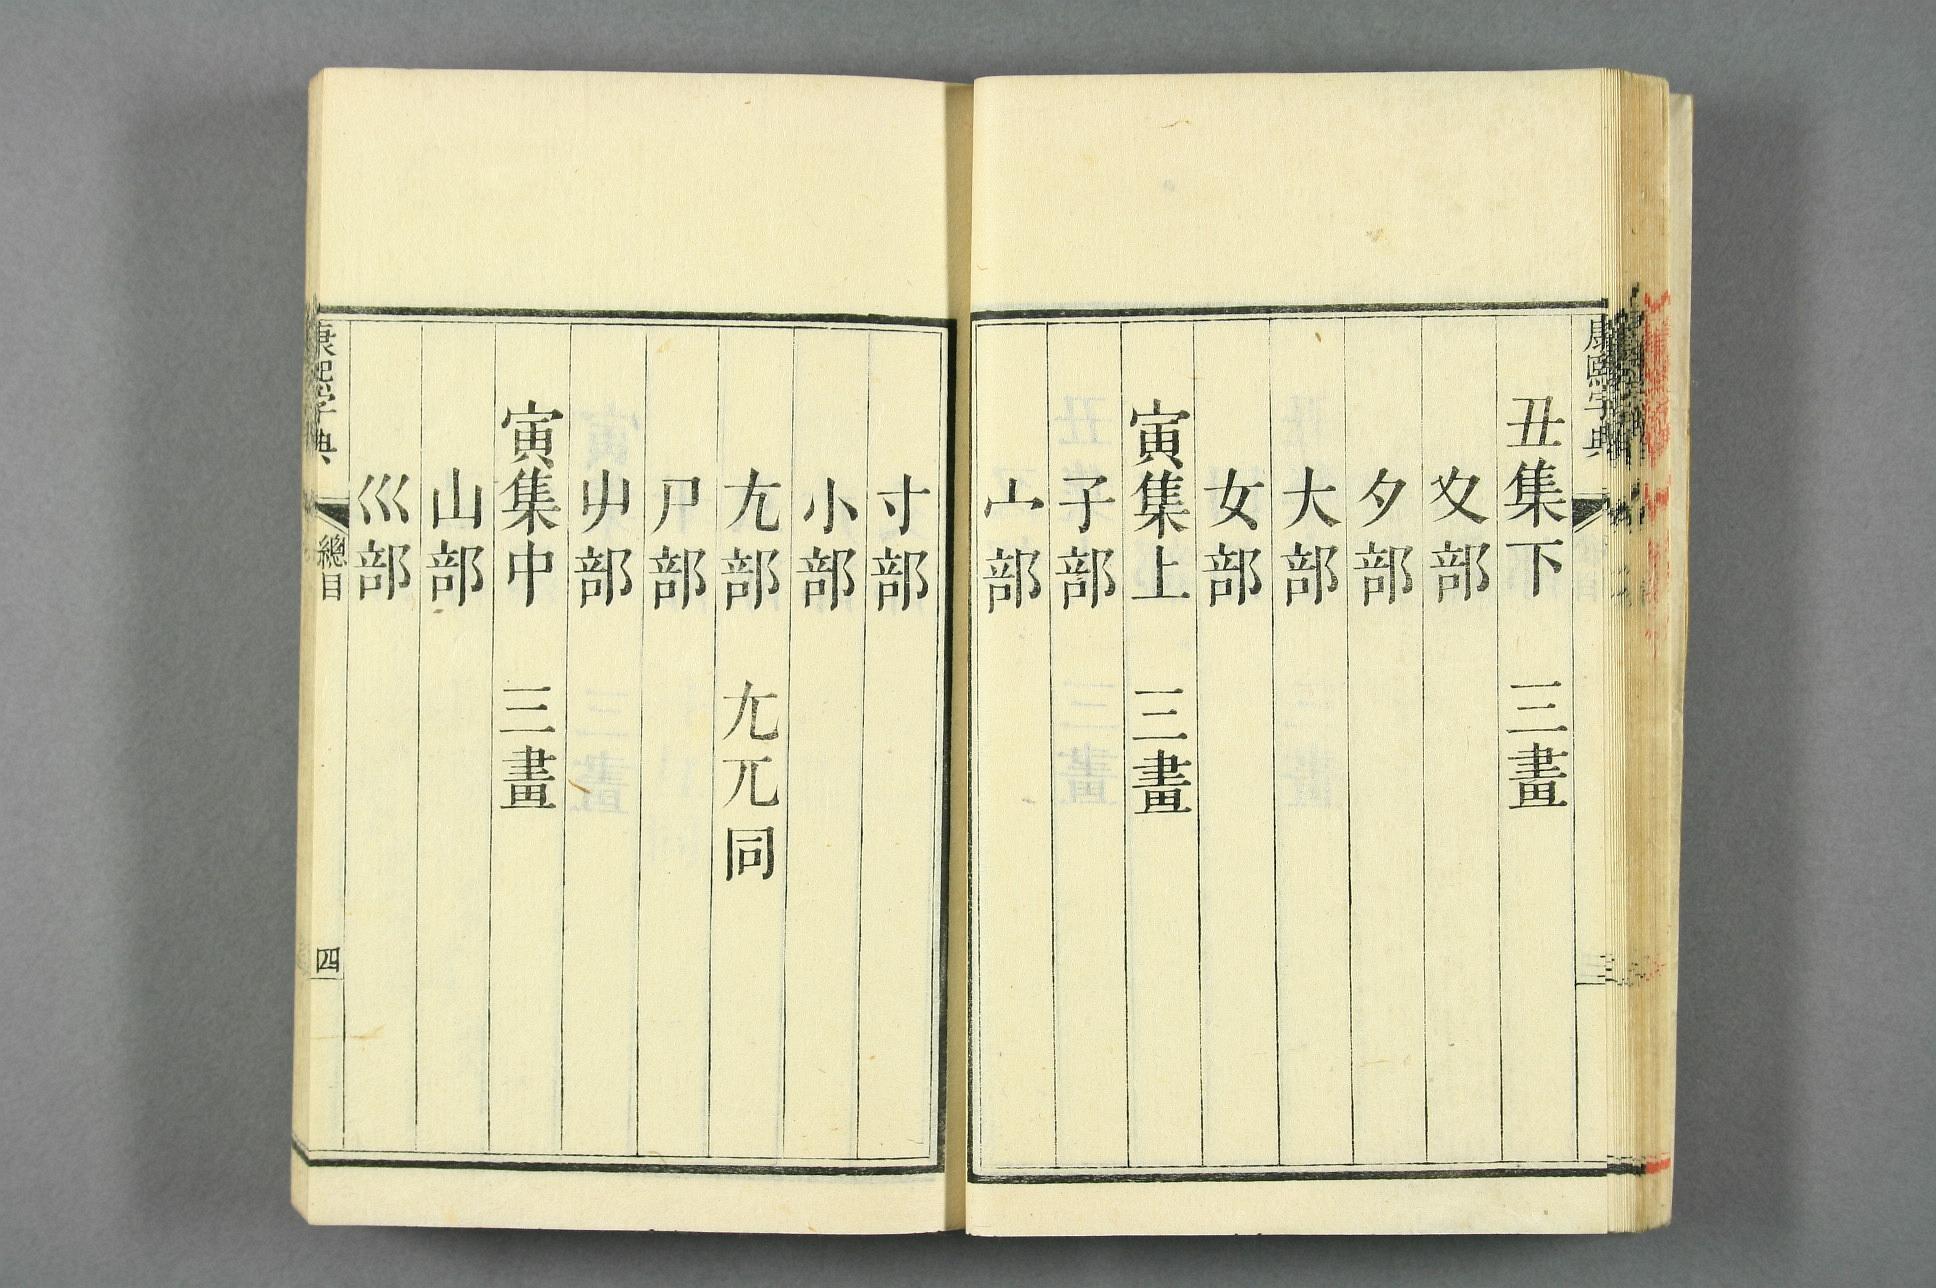 康熙字典
三
丑集下 三畫
夊部
夕部
大部
女部
寅集上 三畫
子部
宀部
寸部
小部
尢部 尣兀同
尸部
屮部
寅集中 三畫
山部
巛部
康熙字典 總目 四